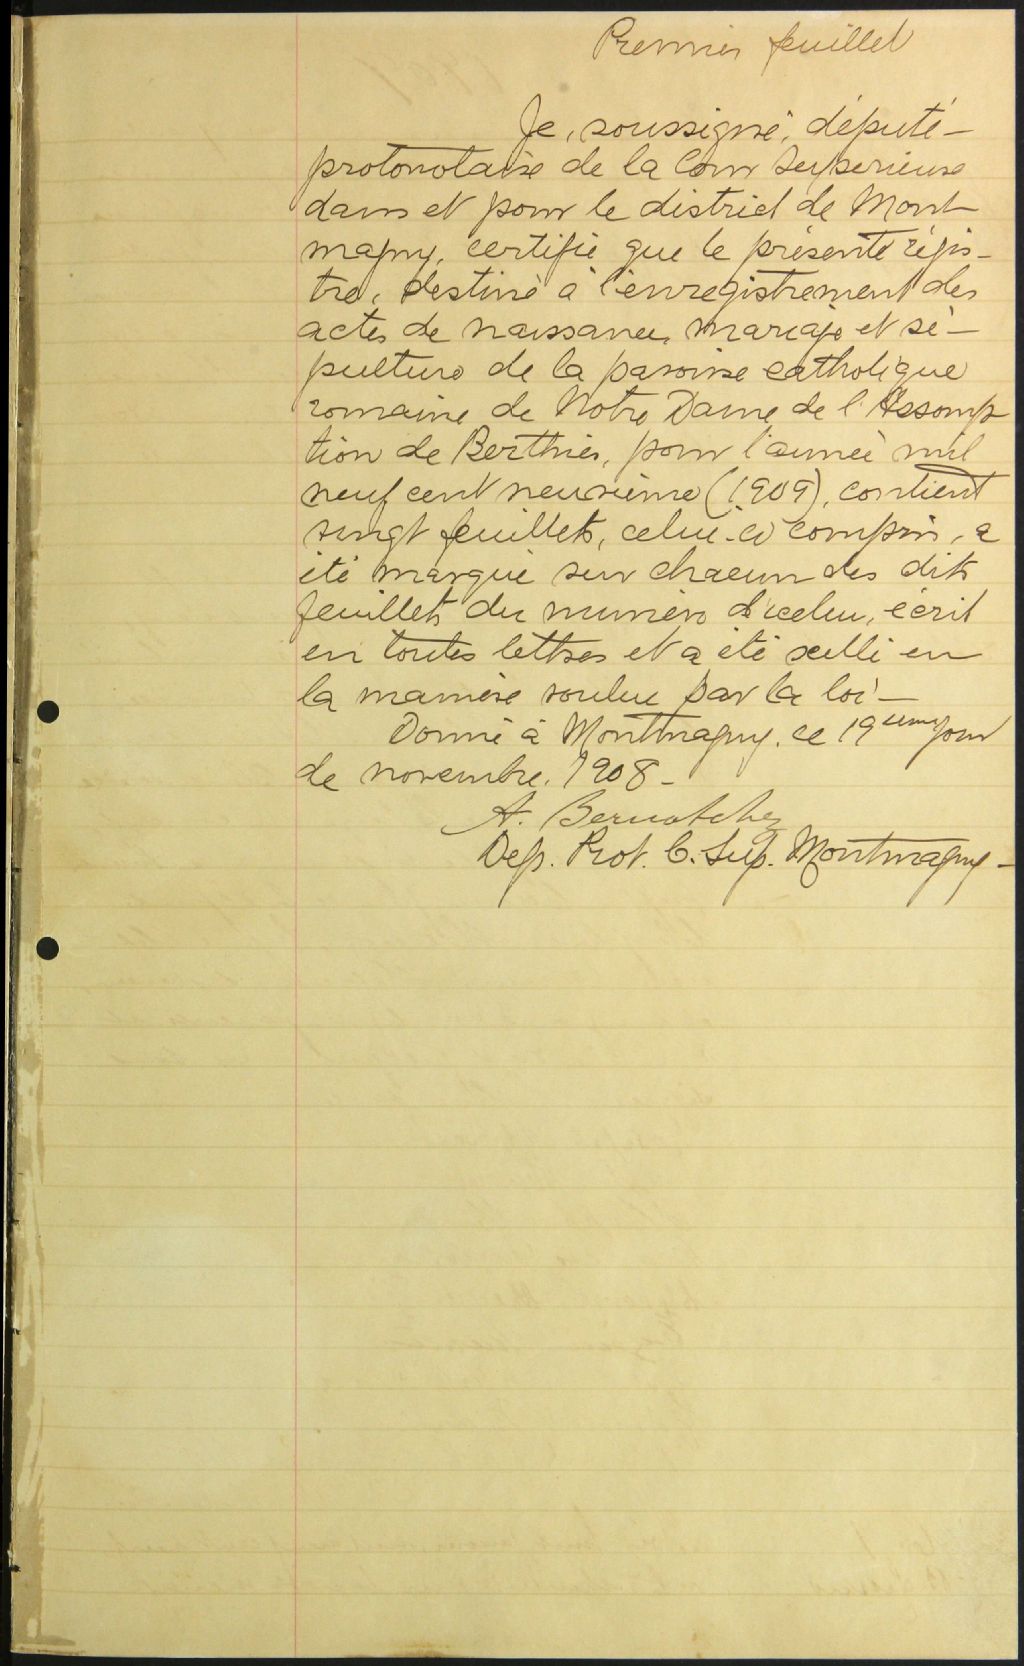 Premier feuillet
Je, soussigné, député-
protonotaire de la Cour Supérieure
dans et pour le district de Mont
magny, certifie que le présente régis-
tre, destiné à l'enregistrement des
actes de naissance, mariage et sé-
pulture de la paroisse catholique
romaine de Notre Dame de l'Assomp
tion de Berthier, pour l'année mil
neuf cent neuvième (1909), contient
vingt feuillets, celui-ci compris, a
été marqué sur chacun des dits
feuillets du numéro d'icelui, écrit
en toutes lettres et a été scellé en
la manière voulue par la loi-
Donné à Montmagny, ce 19ième jour
de novembre, 1908-
A. Bernatchez
Dep. Prot. C. Sup. Montmagny-